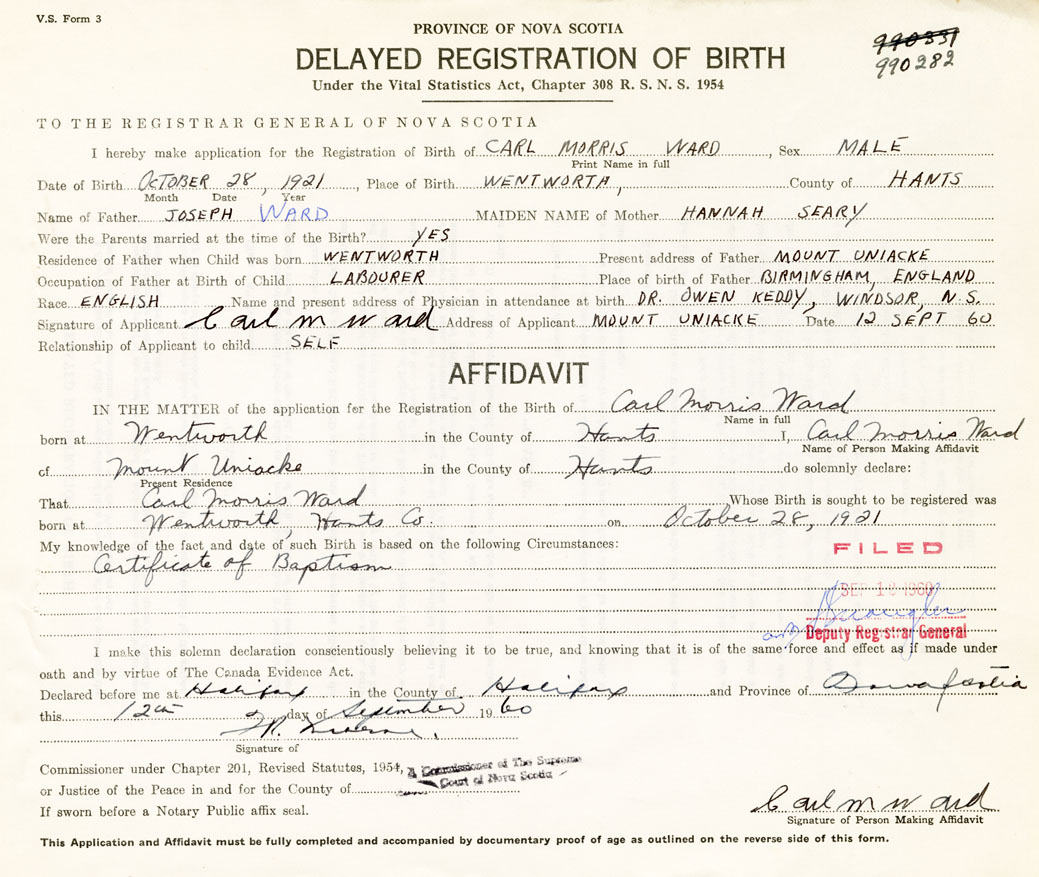 V.S. Form 3
PROVINCE OF NOVA SCOTIA
DELAYED REGISTRATION OF BIRTH
Under the Vital Statistics Act, Chapter 308 R. S. N. S. 1954
990331
990282
TO THE REGISTRAR GENERAL OF NOVA SCOTIA
I hereby make application for the Registration of Birth of CARL MORRIS WARD, Sex MALE
Print Name in full
Date of Birth OCTOBER 28, 1921, Place of Birth WENTWORTH, County of HANTS
Month Date Year
Name of Father JOSEPH WARD MAIDEN NAME of Mother HANNAH SEARY
Were the Parents married at the time of the Birth? YES
Residence of Father when Child was born WENTWORTH Present address of Father MOUNT UNIACKE
Occupation of Father at Birth of Child LABOURER Place of birth of Father BIRMINGHAM, ENGLAND
Race ENGLISH Name and present address of Physician in attendance at birth DR. OWEN KEDDY, WINDSOR, N.S.
Signature of Applicant Carl M Ward Address of Applicant MOUNT UNIACKE Date 12 SEPT 60
Relationship of Applicant to child SELF
AFFIDAVIT
IN THE MATTER of the application for the Registration of the Birth of Carl Morris Ward
Name in full
born at Wentworth in the County of Hants I, Carl Morris Ward
Name of Person Making Affidavit
of Mount Uniacke in the County of Hants do solemnly declare:
Present Residence
That Carl Morris Ward Whose Birth is sought to be registered was
born at Wentworth, Hants Co. on October 28, 1921
My knowledge of the fact and date of such Birth is based on the following Circumstances:
Certificate of Baptism
FILED
SEP 1 1960
Deputy Registrar General
I make this solemn declaration conscientiously believing it to be true, and knowing that it is of the same force and effect as if made under
oath and by virtue of The Canada Evidence Act.
Declared before me at Halifax in the County of Halifax and Province of Nova Scotia
this 12th day of September 1960
Signature of
Commissioner under Chapter 201, Revised Statutes, 1954,
A Commissioner of The Supreme
Court of Nova Scotia
or Justice of the Peace in and for the County of
If sworn before a Notary Public affix seal.
Carl M Ward
Signature of Person Making Affidavit
This Application and Affidavit must be fully completed and accompanied by documentary proof of age as outlined on the reverse side of this form.